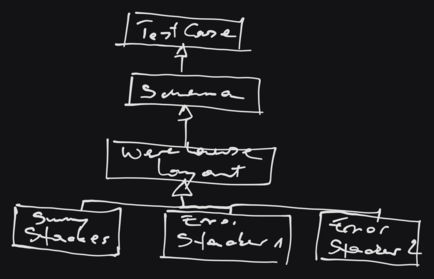 TestCase
Schema
Warehouse
Layout
Sunny
Stacker
Error
Stacker 1
Error
Stacker 2